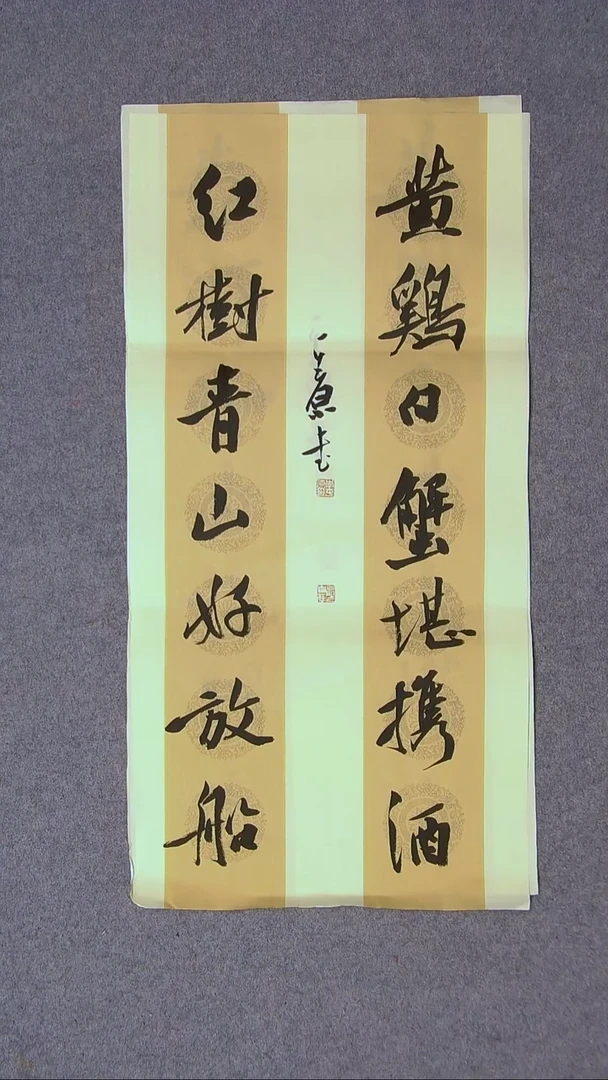 黄鷄白蟹堪携酒
红樹青山好放船